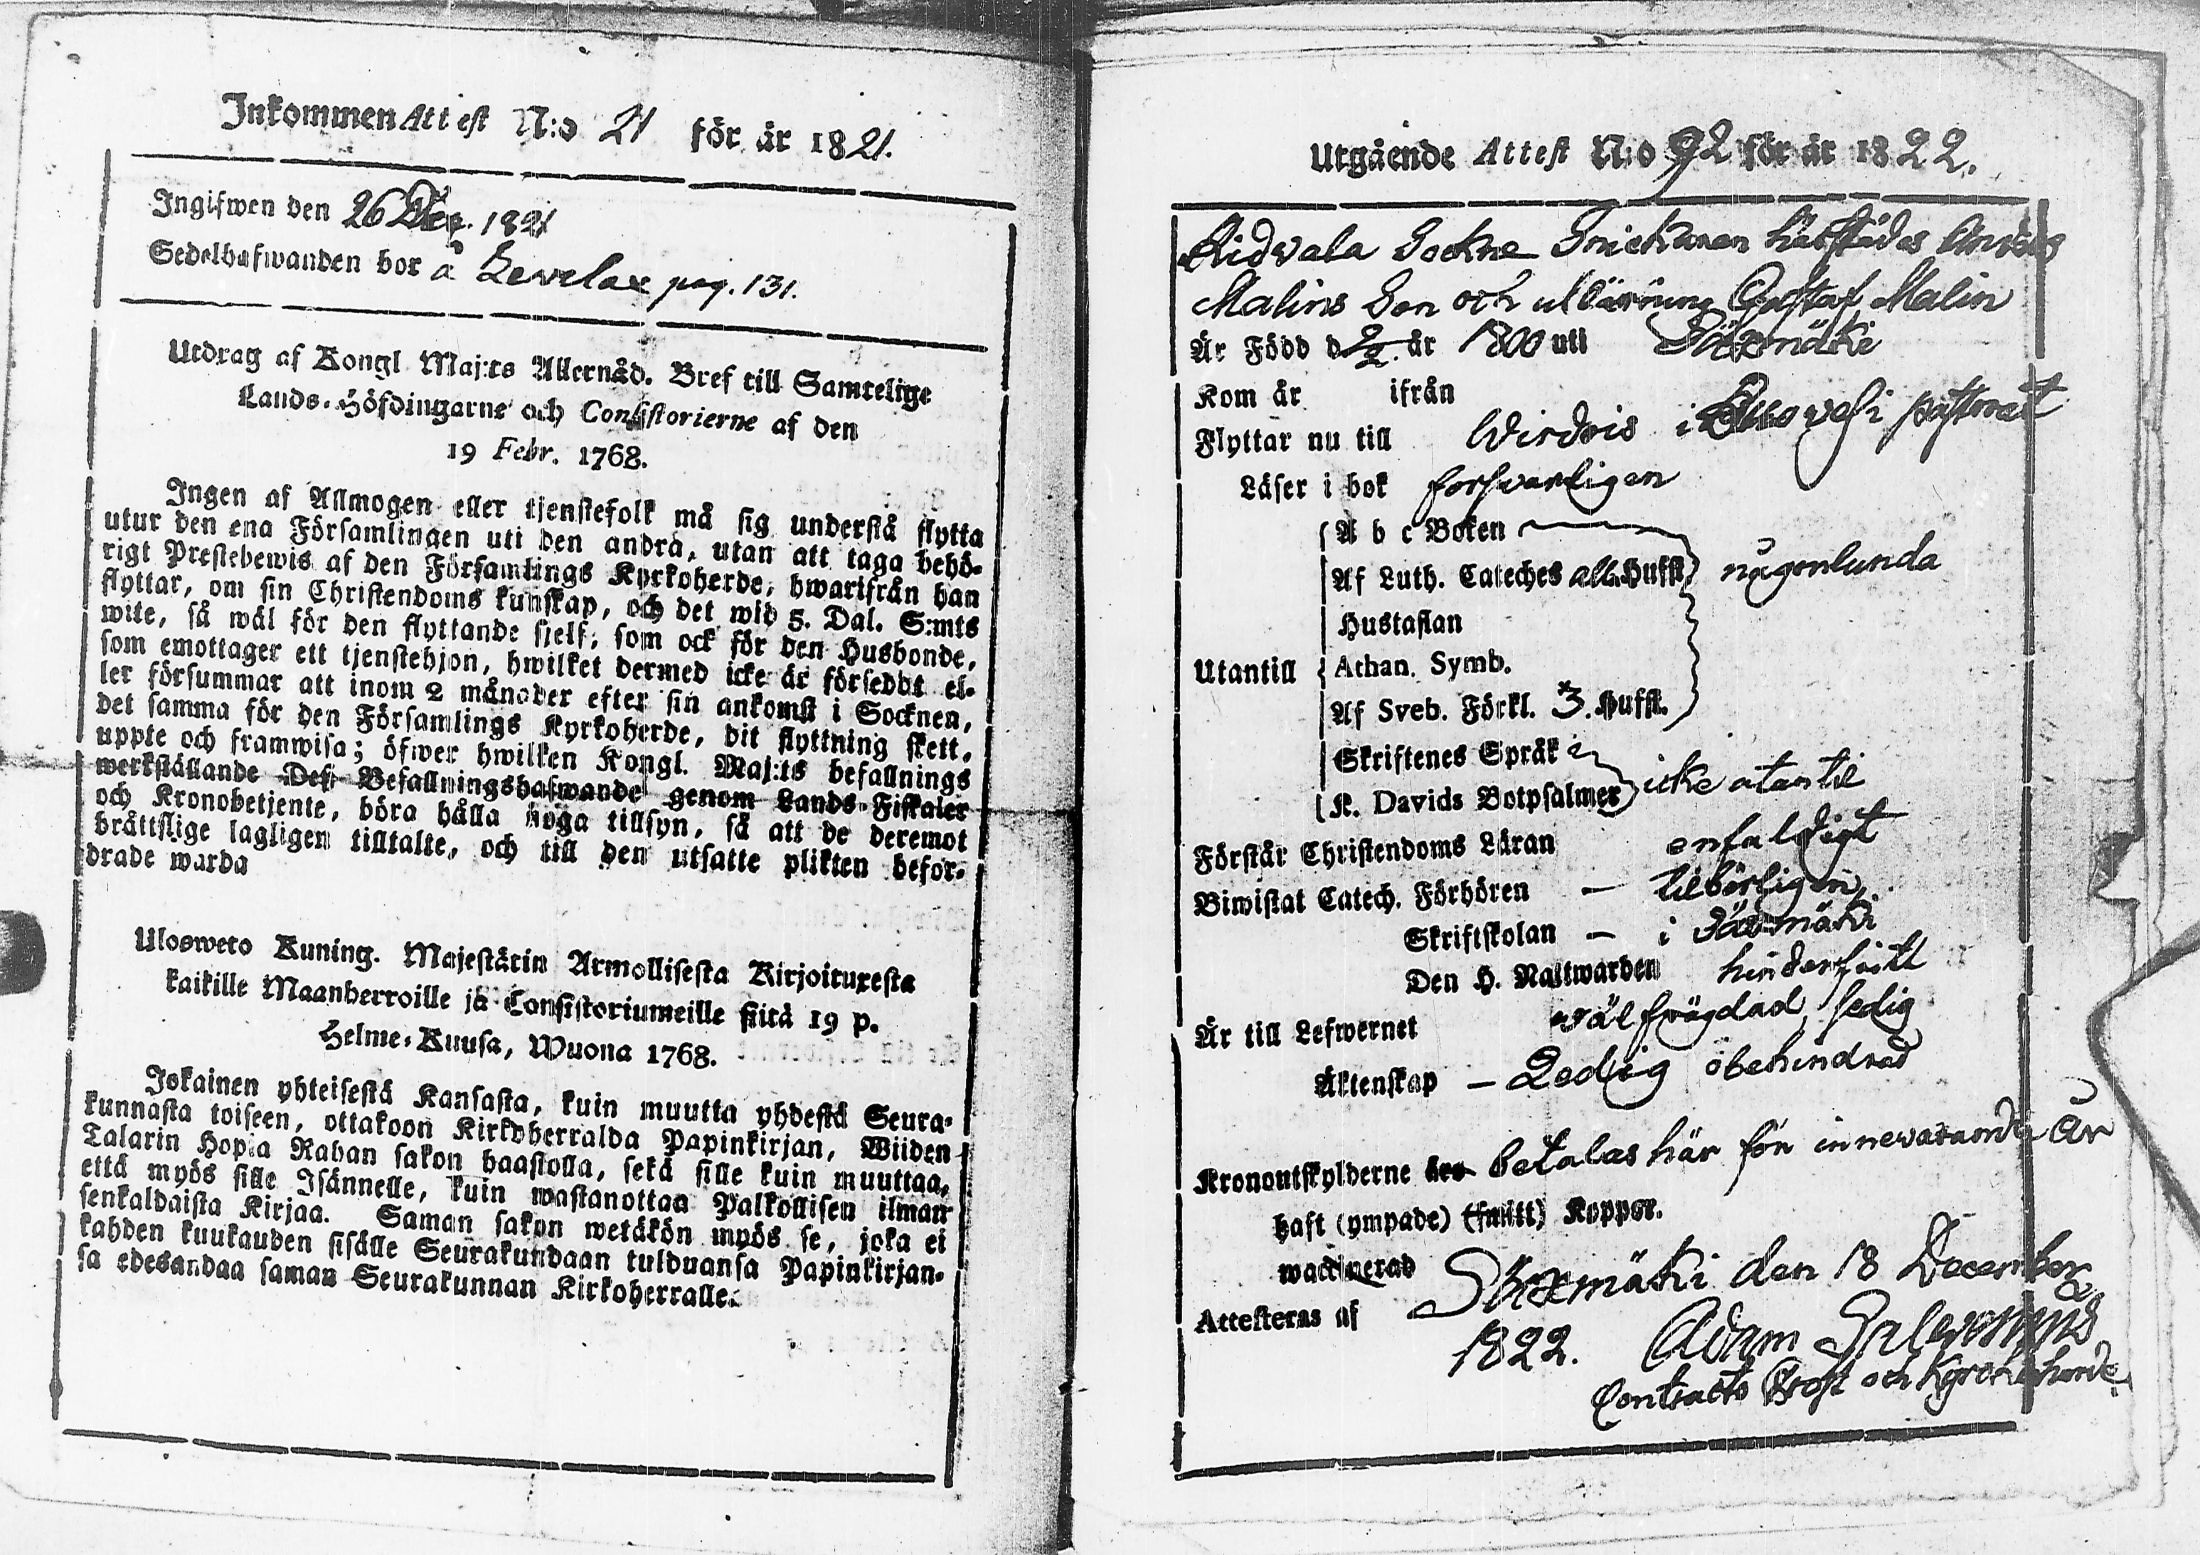 Inkommen Attest N:o 21 för år 1821.
Ingifwen den 26 Dec. 1821
Sedelhafwanden bor å Levelax pag. 131.
Utdrag af Kongl Maj:ts Allernåd. Bref till Samtelige
Lands-Höfdingarne och Consistorierne af den
19 Febr. 1768.
Ingen af Allmogen eller tjenstefolk må sig understå flytta
utur den ena Församlingen uti den andra, utan att taga behö-
rigt Prestebewis af den Församlings Kyrkoherde, hwarifrån han
flyttar, om sin Christendoms kunskap, och det wid 5. Dal. S:mts
wite, så wäl för den flyttande sjelf, som ock för den Husbonde,
som emottager ett tjenstehjon, hwilket dermed icke är försedbt el-
ler försummar att inom 2 månader efter sin ankomst i Socknen,
det samma för den Församlings Kyrkoherde, dit flyttning skett,
uppte och framwisa; öfwer hwilken Kongl. Maj:ts befallnings
werkställande Des Befallningshafwande genom Lands-Fiskaler
och Kronobetjente, böra hålla noga tillsyn, så att de deremot
bråttslige lagligen tilltalte, och till den utsatte plikten befor-
drade warda
Ulosweto Kuning. Majestätin Armollisesta Kirjoituxesta
kaikille Maanherroille ja Consistoriumeille siitä 19 p.
Helme-Kuusa, Wuona 1768.
Jokainen yhteisestä Kansasta, kuin muutta yhdestä Seura-
kunnasta toiseen, ottakoon Kirkoherralda Papinkirjan, Wiiden
Talarin Hopia Rahan sakon haastolla, sekä sille kuin muuttaa,
että myös sille Isännelle, kuin wastanottaa Palkollisen ilman
senkaldaista Kirjaa. Saman sakon wetäkön myös se, joka ei
kahden kuukauden sisälle Seurakundaan tulduansa Papinkirjan-
sa edesandaa saman Seurakunnan Kirkoherralle.
Utgående Attest N:o 92 för år 1822.
Ridvala Sockne Snickaren härstädes Anders
Malins Son och ullärning Gustaf Malin
Är Född d 2/2 år 1800 uti Säxmäki
Kom år ifrån
Flyttar nu till Wirdois i Ruovesi pastorat
Läser i bok forsvarligen
A b c Boken
Af Luth. Cateches alla Hufst. någonlunda
Hustaflan
Utantill Athan. Symb.
Af Sveb. Förkl. 3. Hufst.
Skriftenes Språk
K. Davids Botpsalmer icke utantil
Förstår Christendoms Läran enfaldigt
Biwistat Catech. Förhören — tilbörligen,
Skriftskolan — i Säxmäki
Den H. Nattwarden hinderfritt
Är till Lefwernet välfrägdad, sedig
Äktenskap — Ledig obehindrad
Kronoutskylderne äro betalas här för innevarande år
haft (ympade) (smitt) Koppor.
waccinerad
Attesteras af Säxmäki den 18 December
1822. Adam
Contracts Prost och Kyrckoherde.